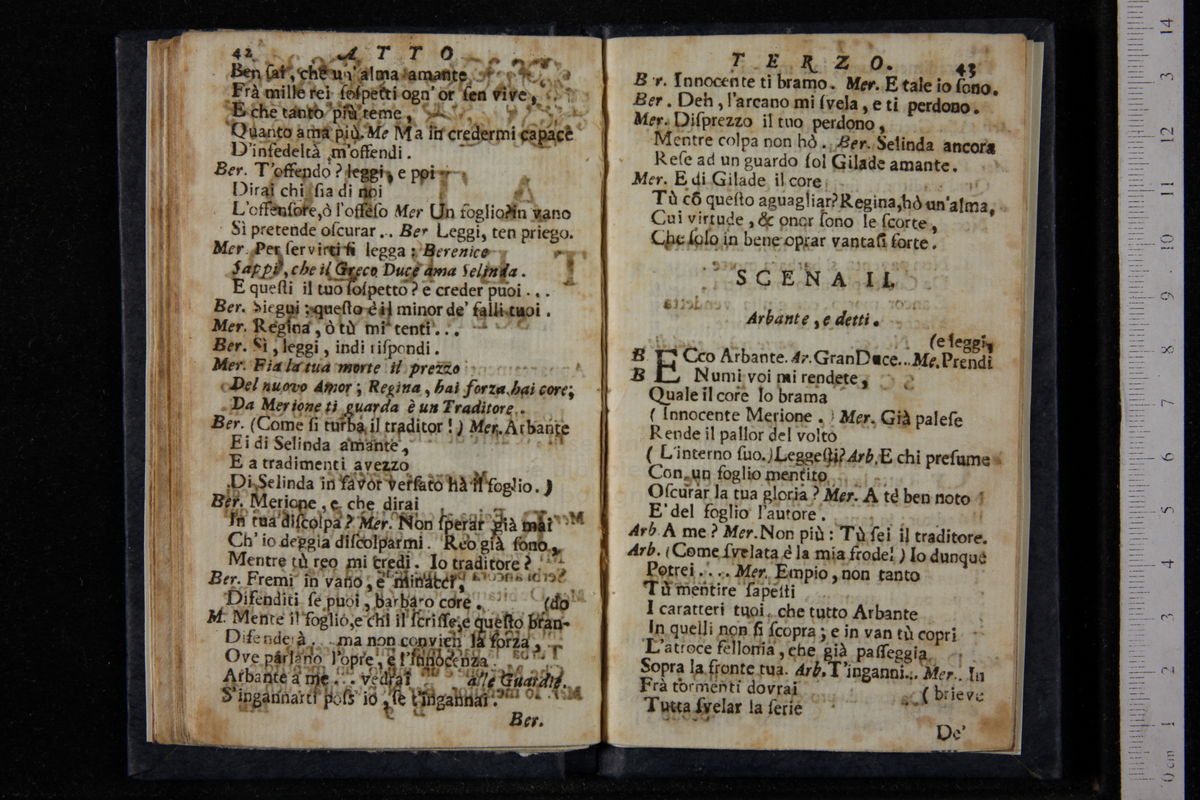 42 ATTO
Ben ſai, che un' alma amante
Frà mille rei ſoſpetti ogn' or ſen vive,
E che tanto più teme,
Quanto ama più. Me Ma in credermi capace
D'infedeltà m'offendi.
Ber. T'offendo? leggi, e poi
Dirai chi ſia di noi
L'offenſore, ò l'offeſo Mer Un foglio? in vano
Sì pretende oſcurar.. Ber Leggi, ten priego.
Mer. Per ſervirti ſi legga: Berenice
Sappi, che il Greco Duce ama Selinda.
E queſti il tuo ſoſpetto? e creder puoi...
Ber. Siegui: queſto è il minor de' falli tuoi.
Mer. Regina, ò tù mi tenti...
Ber. Sì, leggi, indi riſpondi.
Mer. Fia la tua morte il prezzo
Del nuovo Amor; Regina, hai forza, hai core;
Da Merione ti guarda è un Traditore.
Ber. (Come ſi turba il traditor!) Mer. Arbante
Ei di Selinda amante,
E a tradimenti avezzo
Di Selinda in favor verſato hà il foglio.)
Ber. Merione, e che dirai
In tua diſcolpa? Mer. Non ſperar già mai
Ch' io deggia diſcolparmi. Reo già ſono,
Mentre tù reo mi credi. Io traditore?
Ber. Fremi in vano, e minacci,
Difenditi ſe puoi, barbaro core. (do
M. Mente il foglio, e chi il ſcriſſe, e queſto bran-
Difenderà... ma non convien la forza,
Ove parlano l'opre, e l'innocenza.
Arbante a me... vedrai alle Guardie.
S'ingannarti poſs' io, ſe t'ingannai.
Ber.
TERZO. 43
Ber. Innocente ti bramo. Mer. E tale io ſono.
Ber. Deh, l'arcano mi ſvela, e ti perdono.
Mer. Diſprezzo il tuo perdono,
Mentre colpa non hò. Ber. Selinda ancora
Reſe ad un guardo ſol Gilade amante.
Mer. E di Gilade il core
Tù cõ queſto aguagliar? Regina, hò un'alma,
Cui virtude, & onor ſono le ſcorte,
Che ſolo in bene oprar vantaſi forte.
SCENA II.
Arbante, e detti.
(e leggi,
B ECco Arbante. Ar. Gran Duce... Me. Prendi
B Numi voi mi rendete,
Quale il core Io brama
(Innocente Merione.) Mer. Già paleſe
Rende il pallor del volto
(L'interno ſuo.) Leggeſti? Arb. E chi preſume
Con un foglio mentito
Oſcurar la tua gloria? Mer. A te ben noto
E' del foglio l'autore.
Arb A me? Mer. Non più: Tù ſei il traditore.
Arb. (Come ſvelata è la mia frode!) Io dunque
Potrei.... Mer. Empio, non tanto
Tù mentire ſapeſti
I caratteri tuoi, che tutto Arbante
In quelli non ſi ſcopra; e in van tù copri
L'atroce fellonia, che già paſſeggia
Sopra la fronte tua. Arb. T'inganni.. Mer.. In
Frà tormenti dovrai (brieve
Tutta ſvelar la ſerie
De'
14
3
12
11
10
9
8
7
6
5
4
3
2
1
0 cm